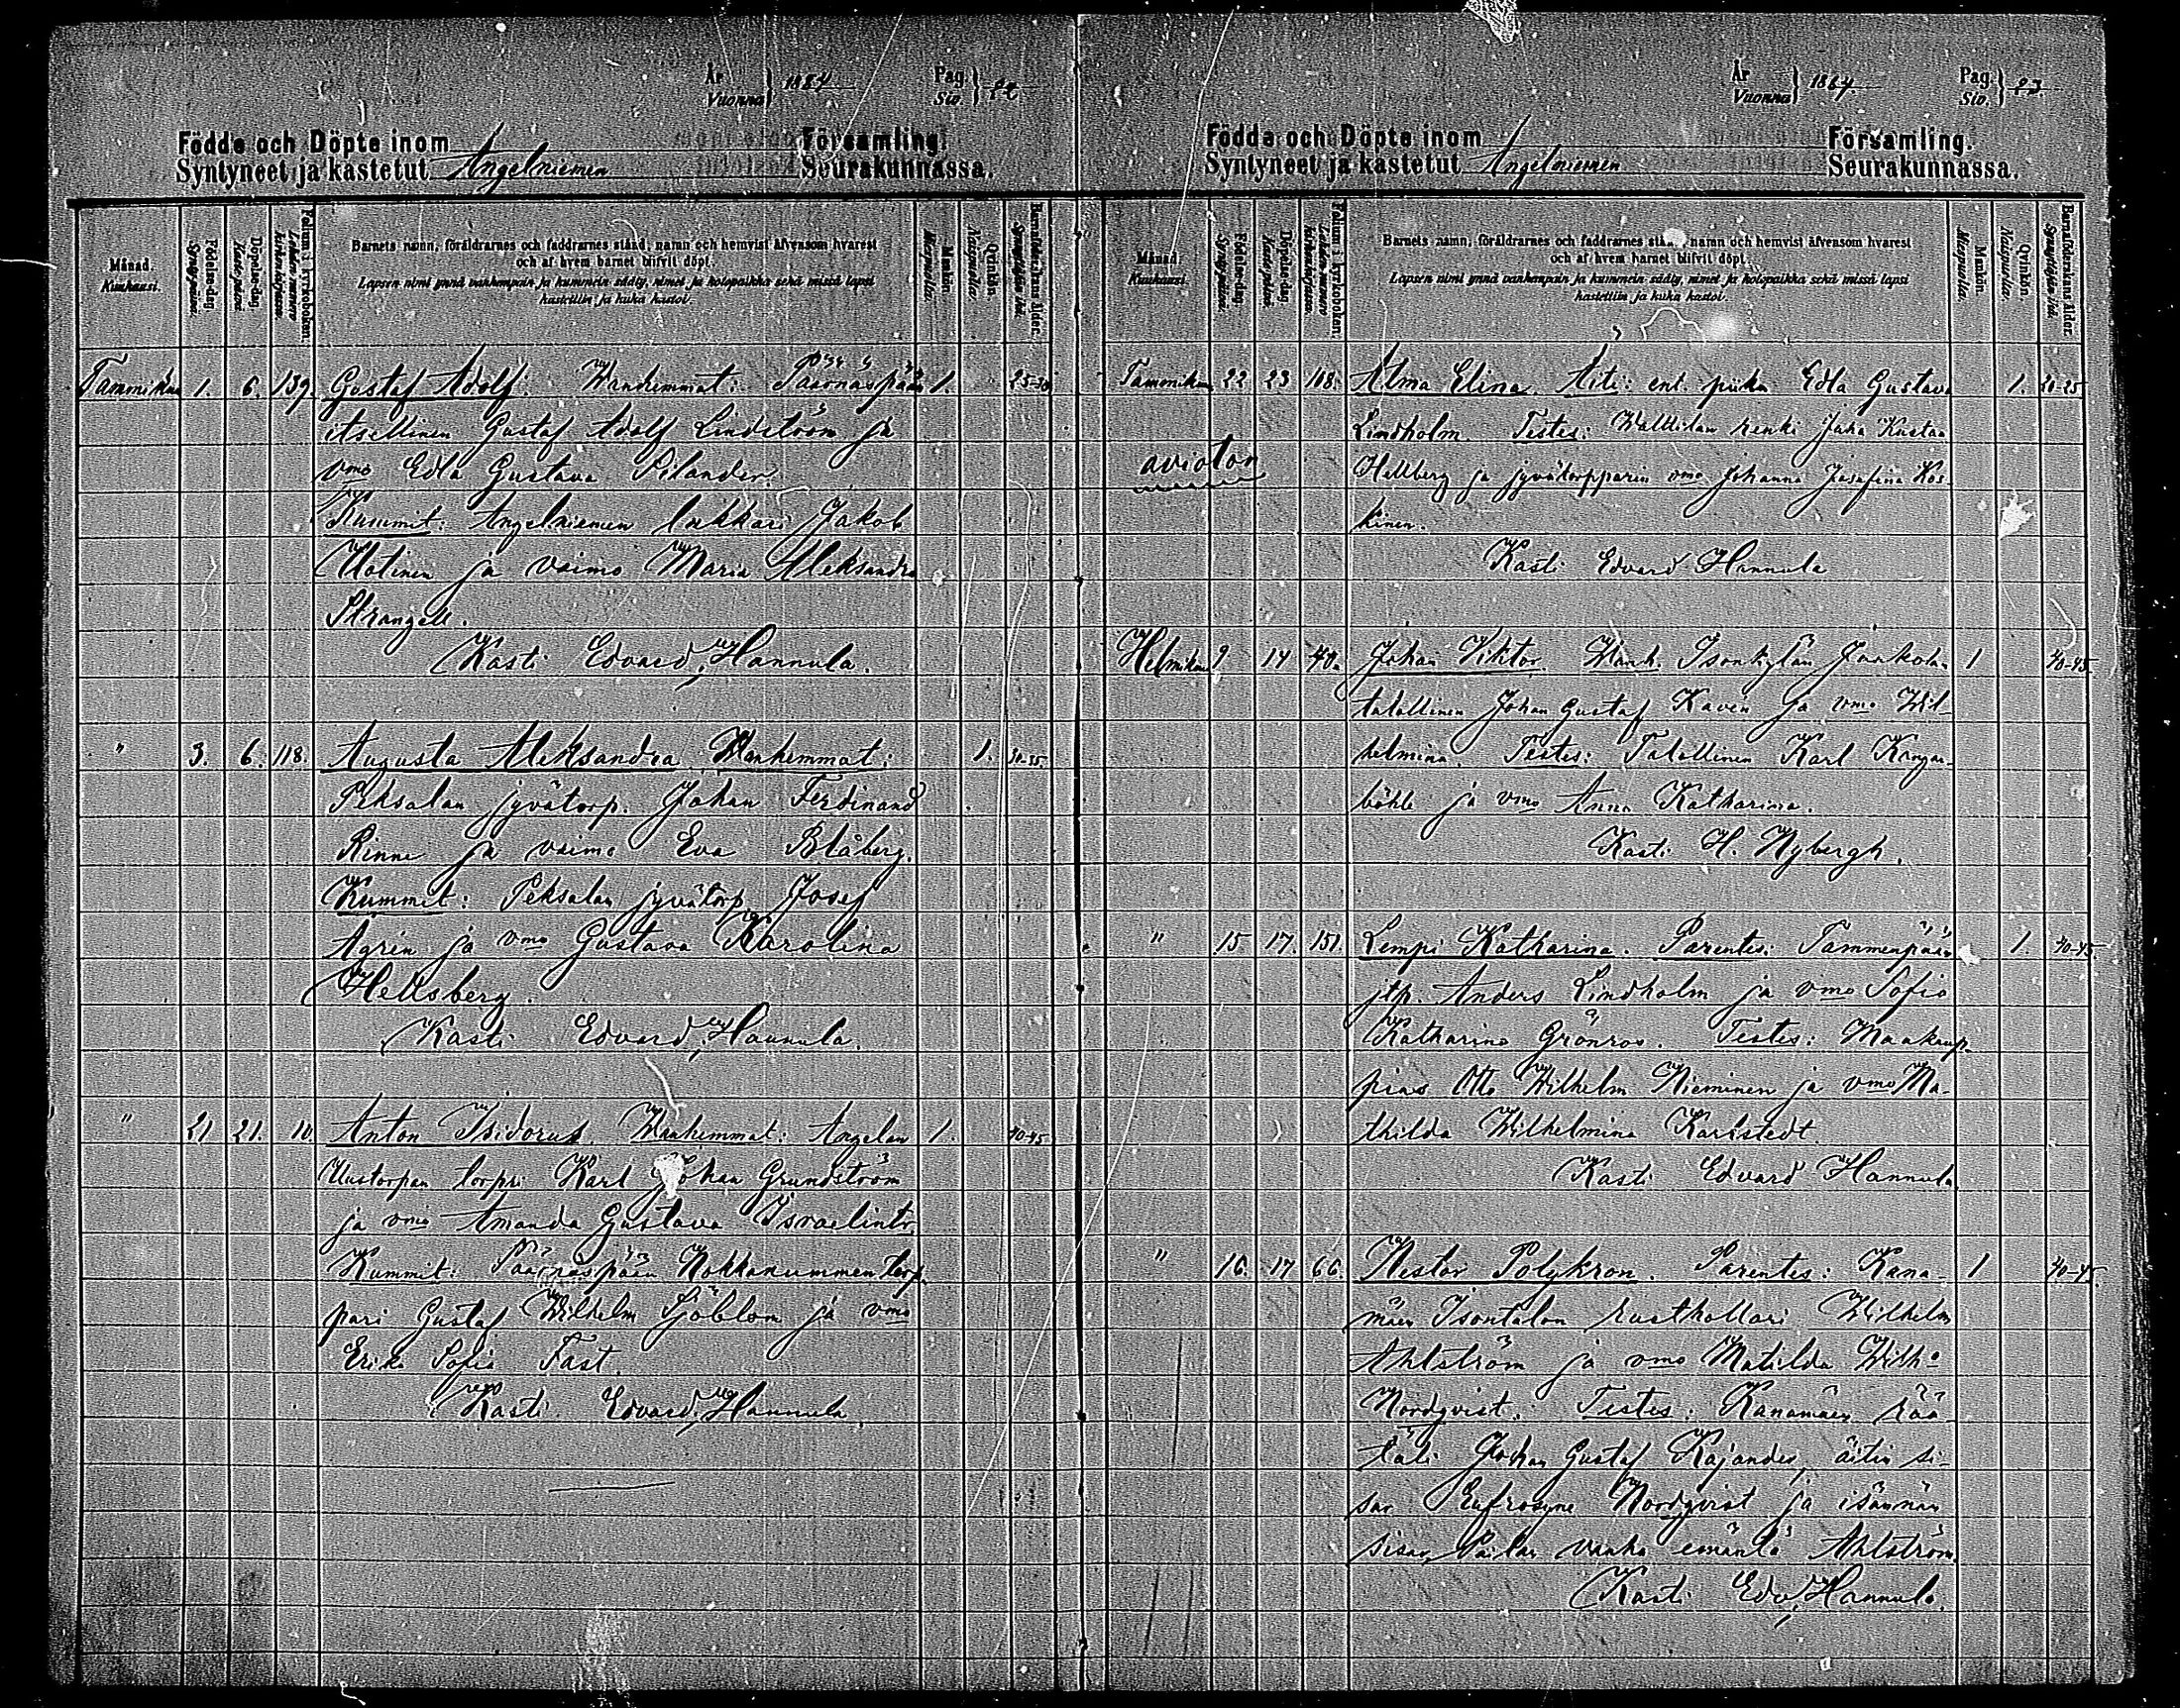 År
Vuonna } 1884
Pag.
Siv. } 22
Födde och Döpte inom Församling.
Syntyneet ja kastetut Angelniemen Seurakunnassa.
Månad. Kuukausi.
Födelse-dag. Syntypäivä.
Döpelse-dag. Kastepäivä.
Folium i kyrkoboken. Lehden numero kirkonkirjassa.
Barnets namn, föräldrarnes och faddrarnes stånd, namn och hemvist äfvensom hvarest
och af hvem barnet blifvit döpt.
Lapsen nimi ynnä vanhempain ja kummein sääty, nimet ja kotopaikka sekä missä lapsi
kastettiin ja kuka kastoi.
Mankön. Miespuolia.
Qvinkön. Naispuolia.
Barnaföderskans ålder. Synnyttäjän ikä.
Tammikuu 1. 6. 139. Gustaf Adolf. Wanhemmat: Päärnäspään 1. 25-30
itsellinen Gustaf Adolf Lindström ja
vmo Edla Gustava Silander.
Kummit: Angelniemen lukkari Jakob
Uotinen ja vaimo Maria Aleksandra
Strangell.
Kasti Edvard Hannula.
" 3. 6. 118. Augusta Aleksandra Wanhemmat: 1. 30-35
Peksalan jyvätorp. Johan Ferdinand
Rinne ja vaimo Eva Blåberg.
Kummit: Peksalan jyvätorp. Josef
Agrén ja vmo Gustava Karolina
Hellsberg.
Kasti Edvard Hannula.
" 21 21. 10. Anton Isidorus. Wanhemmat: Angelan 1. 40-45
Uustorpan torpri Karl Johan Grundström
ja vmo Amanda Gustava Israelintr.
Kummit: Päärnäspään Nokkanummen torp-
pari Gustaf Wilhelm Sjöblom ja vmo
Erika Sofia Fast.
Kasti Edvard Hannula.
År
Vuonna } 1884.
Pag.
Siv. } 23.
Födde och Döpte inom Församling.
Syntyneet ja kastetut Angelniemen Seurakunnassa.
Månad. Kuukausi.
Födelse-dag. Syntypäivä.
Döpelse-dag. Kastepäivä.
Folium i kyrkoboken. Lehden numero kirkonkirjassa.
Barnets namn, föräldrarnes och faddrarnes stånd, namn och hemvist äfvensom hvarest
och af hvem barnet blifvit döpt.
Lapsen nimi ynnä vanhempain ja kummein sääty, nimet ja kotopaikka sekä missä lapsi
kastettiin ja kuka kastoi.
Mankön. Miespuolia.
Qvinkön. Naispuolia.
Barnaföderskans ålder. Synnyttäjän ikä.
Tammikuu 22 23 108. Alma Elina. Äiti: ent. piika Edla Gustava 1. 20-25
Lindholm. Testes: Walttilan renki Juha Kustaa
avioton Hellberg ja jyvätorpparin vmo Johanna Josefina Kos-
kinen.
Kasti Edvard Hannula
Helmikuu 9 14 40. Johan Viktor. Wanh. Isonkylän Jaakolan 1 40-45
talollinen Johan Gustaf Kavén ja vmo Wil-
helmina. Testes: Talollinen Karl
böhle ja vmo Anna Katharina.
Kasti H. Nybergh.
" 15 17. 151. Lempi Katharina. Parentes: Tammenpään 1. 40-45
jtp. Anders Lindholm ja vmo Sofia
Katharina Grönros. Testes: Maakaup-
pias Otto Wilhelm Nieminen ja vmo Ma-
thilda Wilhelmina Karlstedt.
Kasti Edvard Hannula
" 16. 17 66. Nestor Polykron. Parentes: Kana- 1 40-45.
mäen Isontalon rusthollari Wilhelm
Ahlström ja vmo Matilda Wilh:a
Nordqvist. Testes: Kanamäen rää-
täli Johan Gustaf Kajander, äitin si-
sar Eufrosyne Nordqvist ja isännän
sisar, vanha emäntä Ahlström.
Kasti Edv. Hannula.